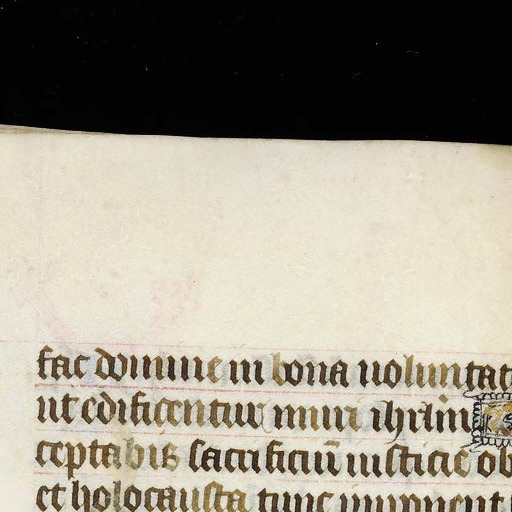 fac domine in bona uoluntat
ut edificentur muri ihrlm
ceptabis sacrificiū iusticie ob
et holocausta tunc imponent